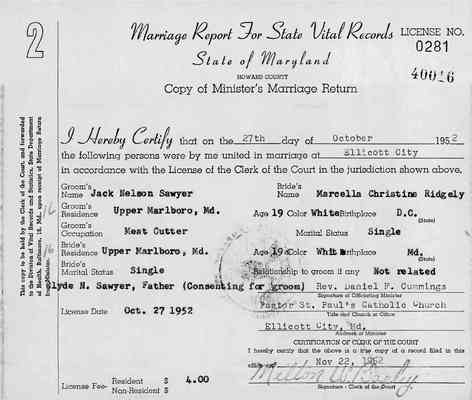 2
Marriage Report For State Vital Records
LICENSE NO.
0281
State of Maryland
40016
HOWARD COUNTY
Copy of Minister's Marriage Return
This copy to be held by the Clerk of the Court, and forwarded
to the Division of Vital Records and Statistics, State Department
of Health, Baltimore, 18, Md., upon receipt of Marriage Return
from Minister.
I Hereby Certify that on the 27th day of October 1952
the following persons were by me united in marriage at Ellicott City
in accordance with the License of the Clerk of the Court in the jurisdiction shown above.
Groom's Name Jack Nelson Sawyer Bride's Name Marcella Christine Ridgely
Groom's Residence Upper Marlboro, Md. Age 19 Color White Birthplace D.C.
(State)
Groom's Occupation Meat Cutter Marital Status Single
Bride's Residence Upper Marlboro, Md. Age 19 Color White Birthplace Md.
(State)
Bride's Marital Status Single Relationship to groom if any Not related
Clyde N. Sawyer, Father (Consenting for groom) Rev. Daniel F. Cummings
Signature of Officiating Minister
License Date Oct. 27 1952 Pastor St. Paul's Catholic Church
Title and Church or Office
Ellicott City, Md.
Address of Minister
CERTIFICATION OF CLERK OF THE COURT
I hereby certify that the above is a true copy of a record filed in this
office Nov 22, 1952
License Fee- Resident $ 4.00
Non-Resident $
Signature - Clerk of the Court